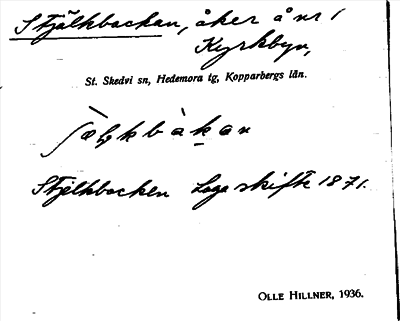 Stjälkbackan, åker å nr 1
Kyrkbyn,
St. Skedvi sn, Hedemora tg, Kopparbergs län.
Stjelkbacken Laga skifte 1871.
OLLE HILLNER, 1936.